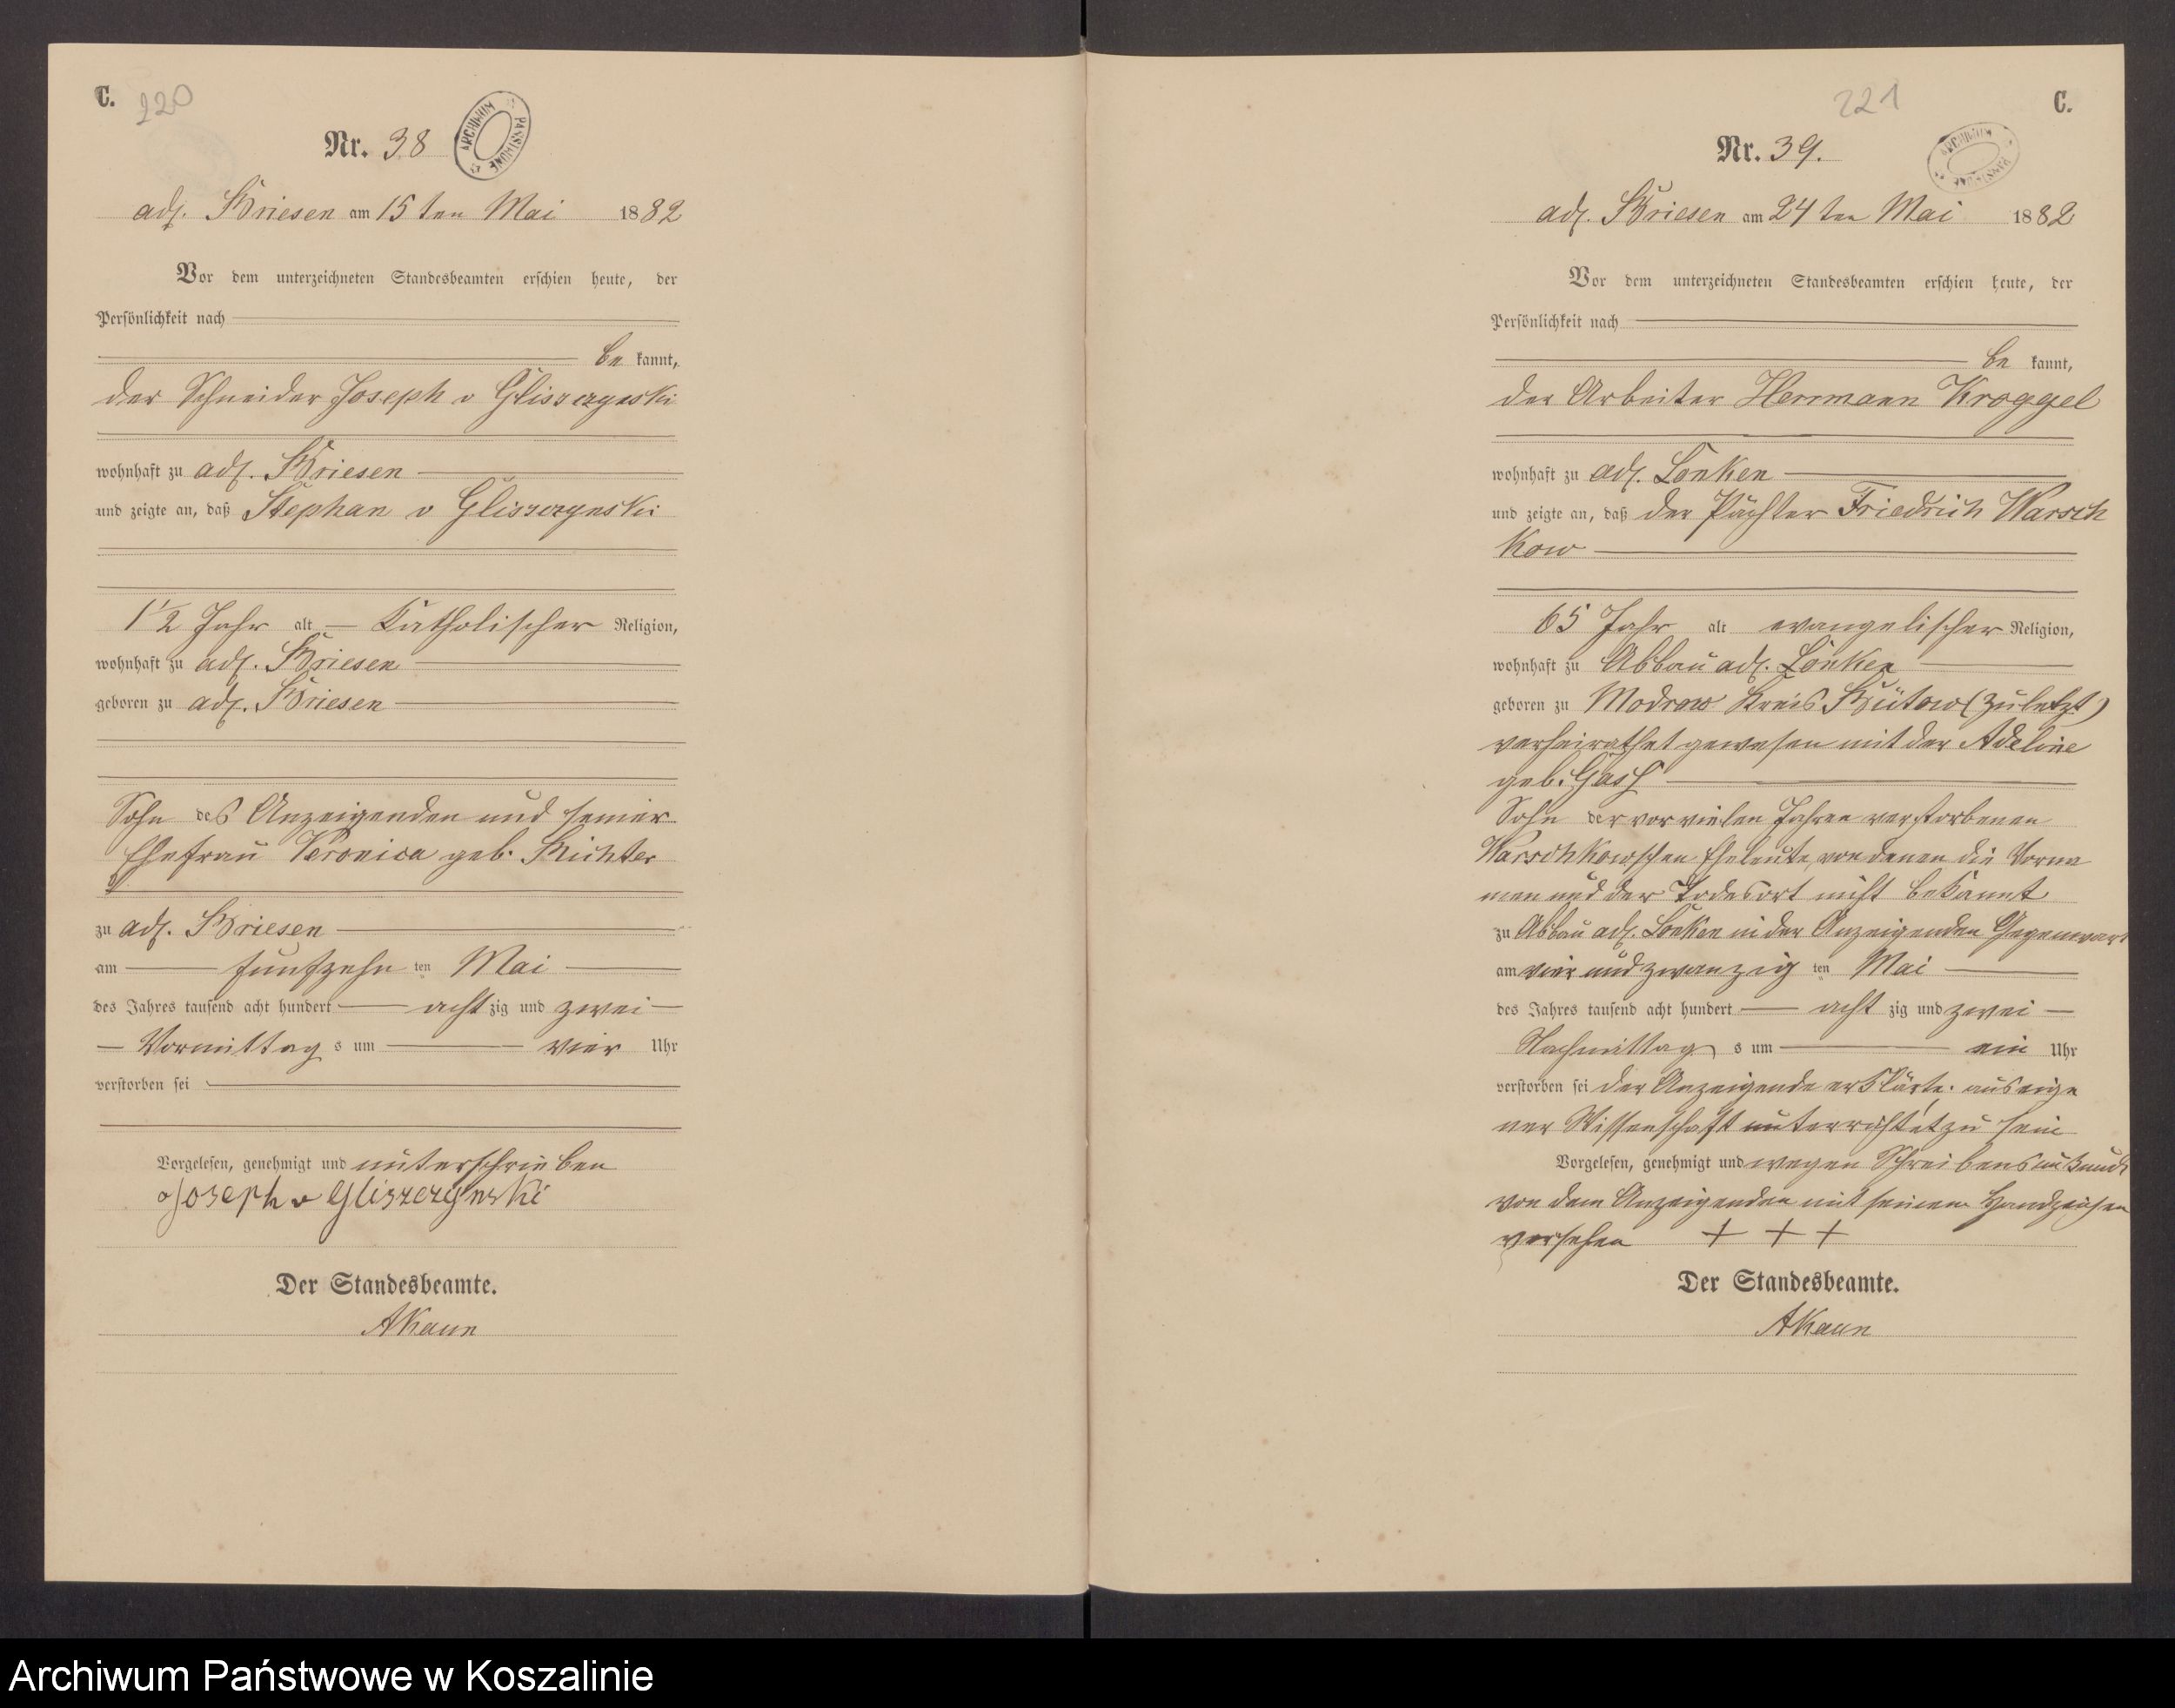 C. 220
Nr. 38
ARCHIWUM PAŃSTWOWE
adl. Briesen am 15ten Mai 1882
Vor dem unterzeichneten Standesbeamten erschien heute, der
Persönlichkeit nach
be kannt,
der Schneider Joseph v Gliszczynski
wohnhaft zu adl. Briesen
und zeigte an, daß Stephan v Gliszczynski
1 1/2 Jahr alt katholischer Religion,
wohnhaft zu adl. Briesen
geboren zu adl. Briesen
Sohn des Anzeigenden und seiner
Ehefrau Veronica geb. Richter
zu adl. Briesen
am fünfzehn ten Mai
des Jahres tausend acht hundert acht zig und zwei
Vormittag s um vier Uhr
verstorben sei
Vorgelesen, genehmigt und unterschrieben
Joseph v Gliszczynski
Der Standesbeamte.
AKaun
221 C.
Nr. 39.
adl. Briesen am 24ten Mai 1882
Vor dem unterzeichneten Standesbeamten erschien heute, der
Persönlichkeit nach
be kannt,
der Arbeiter Herrmann Kroggel
wohnhaft zu adl. Lonken
und zeigte an, daß der Pächter Friedrich Warsch
kow
65 Jahr alt evangelischer Religion,
wohnhaft zu Abbau adl. Lonken
geboren zu Modrow Kreis Bütow (zuletzt)
verheirathet gewesen mit der Adeline
geb.
Sohn der vor vielen Jahren verstorbenen
Warschkowschen Eheleute, von denen die Vorna
men und der Todesort nicht bekannt
zu Abbau adl. Lonken in der Anzeigenden Gegenwart
am vier und zwanzig ten Mai
des Jahres tausend acht hundert acht zig und zwei
Nachmittag s um ein Uhr
verstorben sei der Anzeigende erklärte. aus eige
ner Wissenschaft unterrichtet zu sein
Vorgelesen, genehmigt und wegen Schreibensunkunde
von dem Anzeigenden mit seinem Handzeichen
versehen + + +
Der Standesbeamte.
AKaun
Archiwum Państwowe w Koszalinie